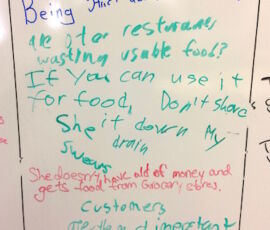 Being
are other resturants
wasting usable food?
If You can use it
for food, Don't shove
She it down my
swears drain
She doesn't have alot of money and
gets food from Grocery stores.
Customers